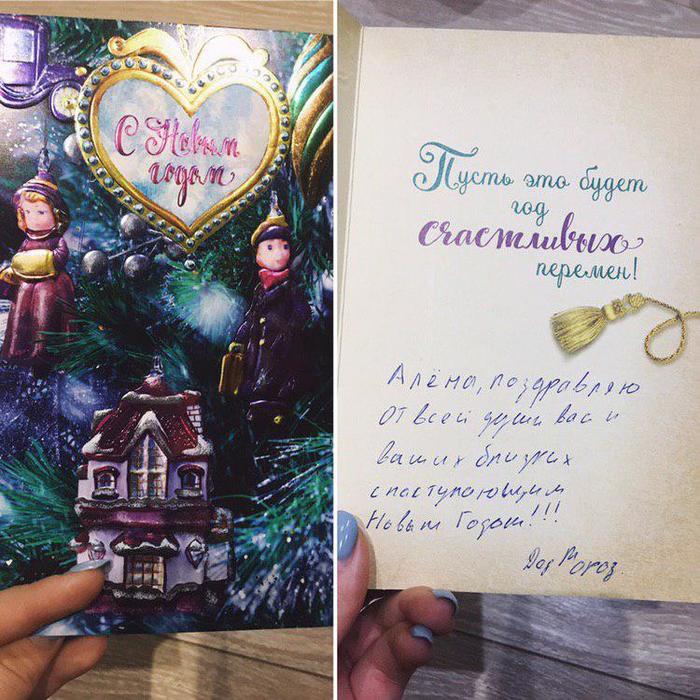 С Новым
годом
Пусть это будет
год
счастливых
перемен!
Алёна, поздравляю
от всей души вас и
ваших близких
с наступающим
Новым Годом!!!
Дед Мороз.